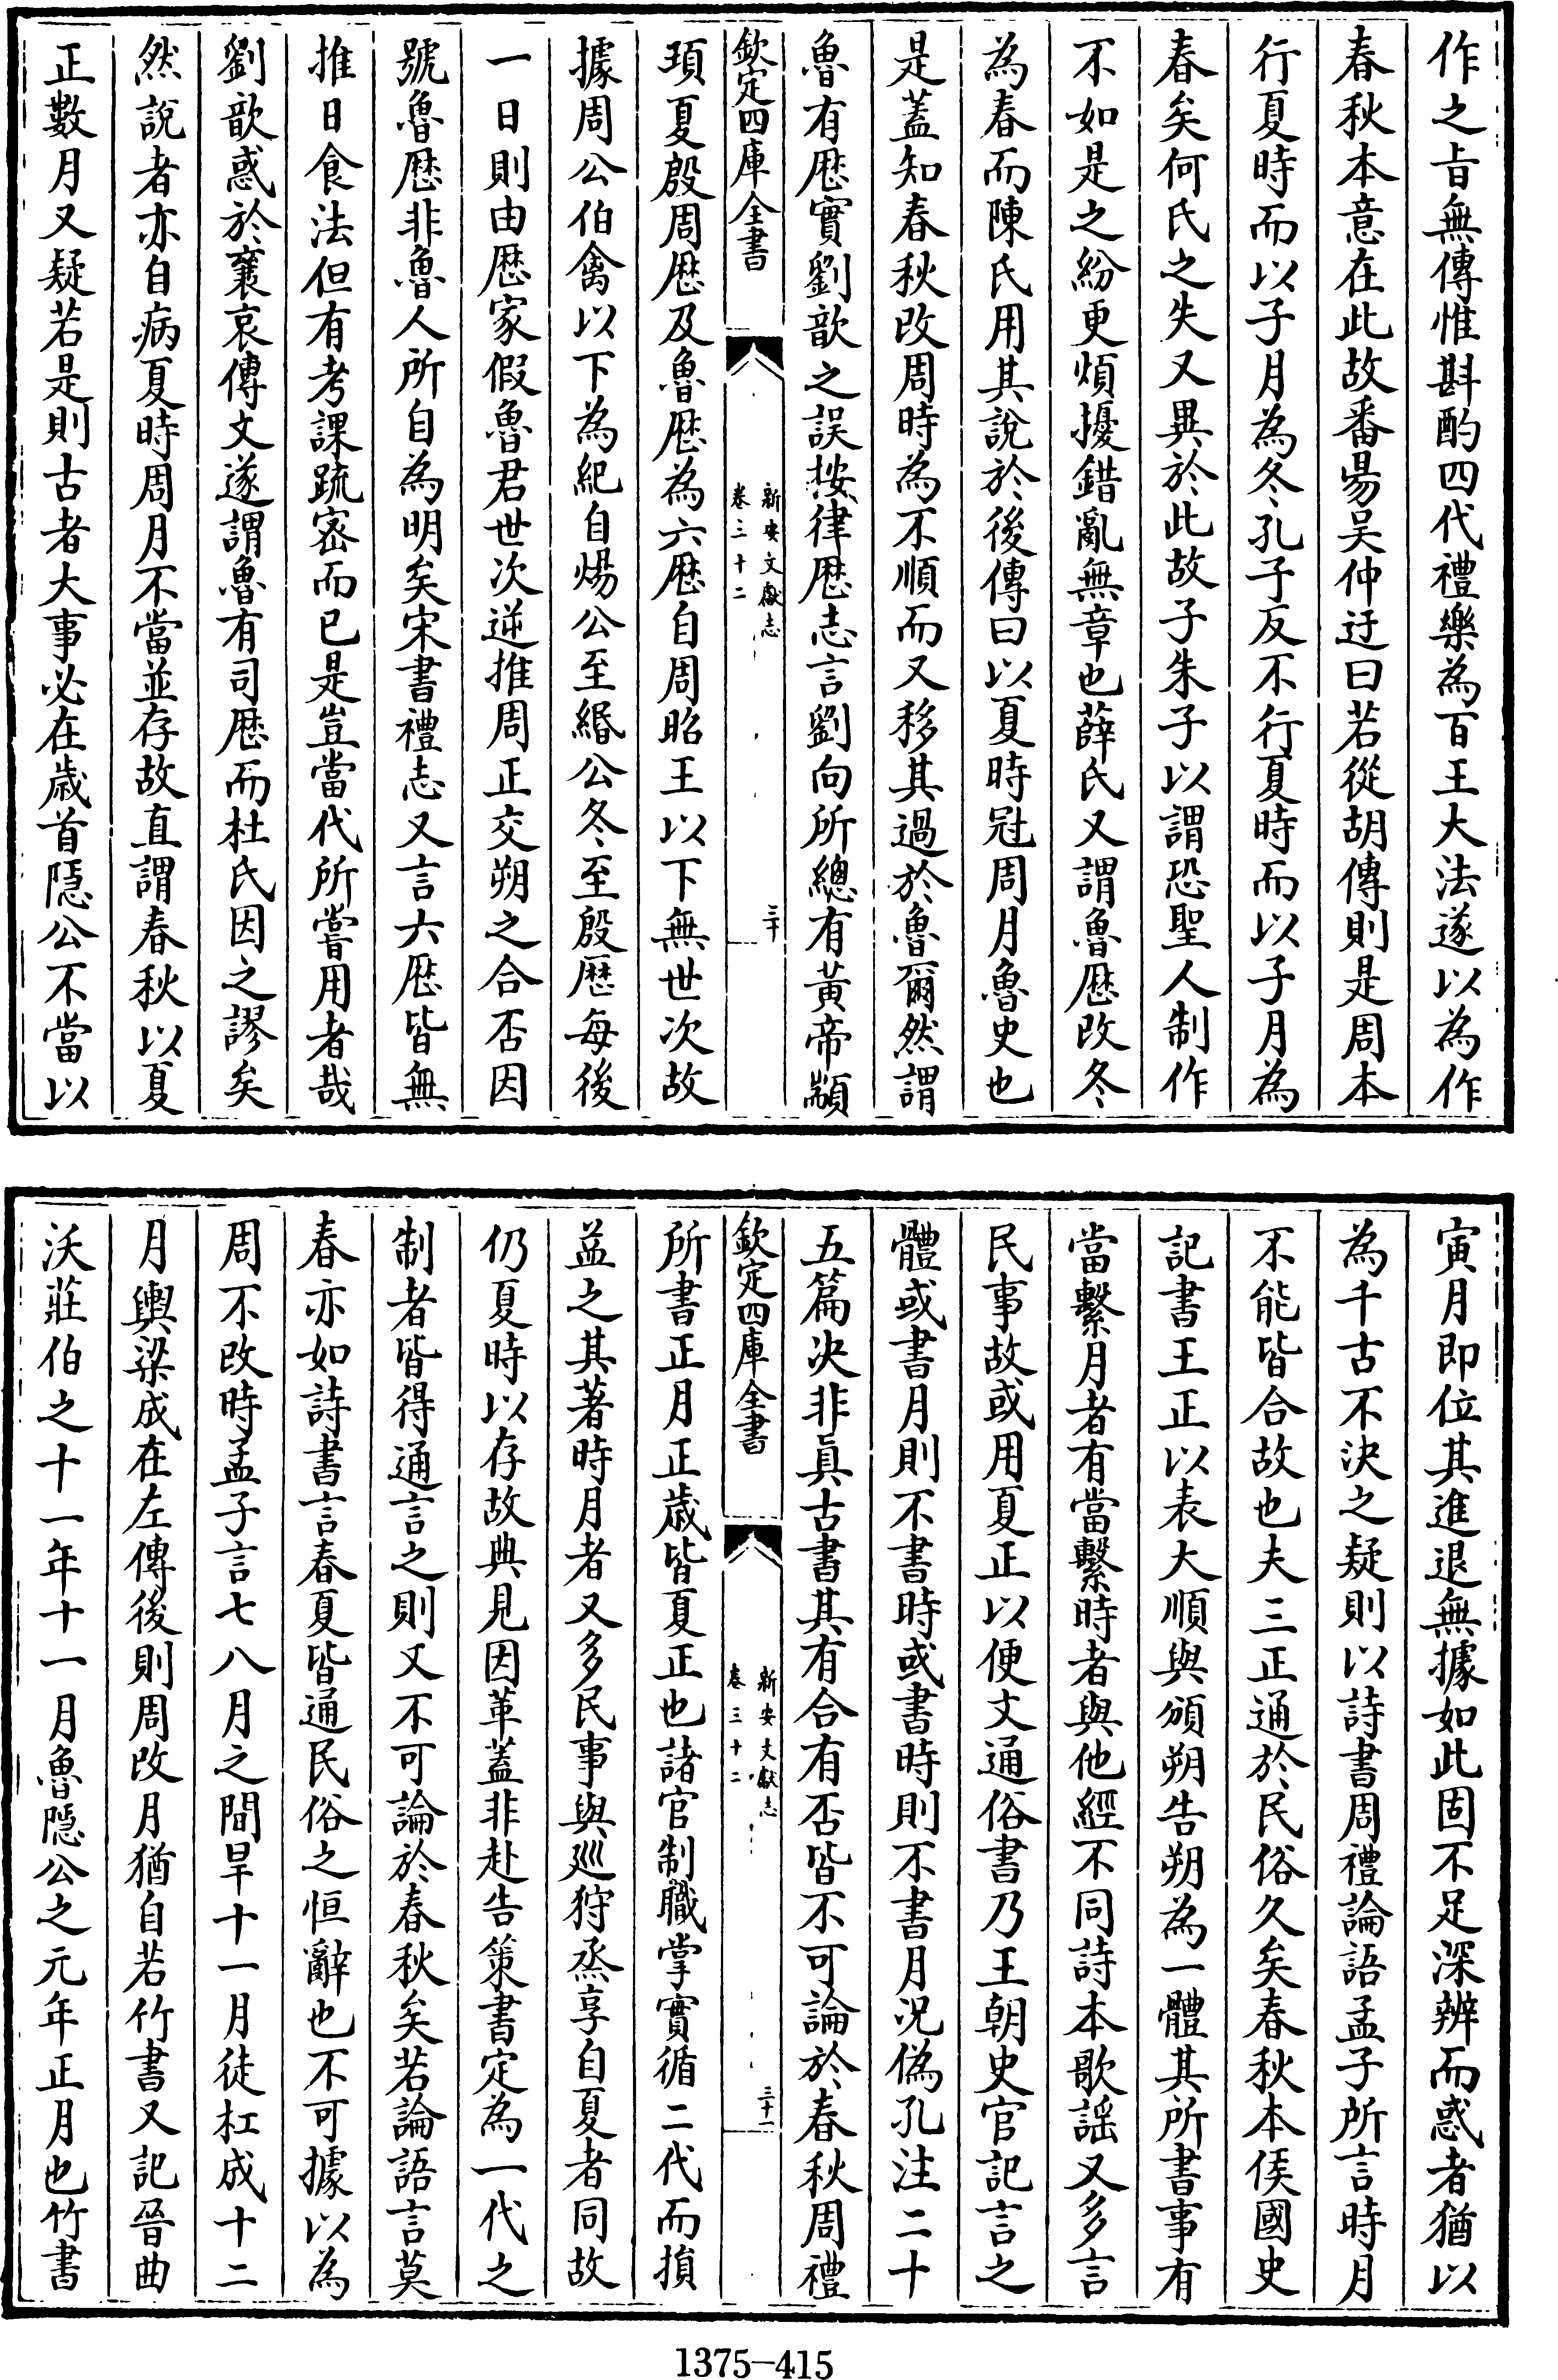 作之旨無傳惟斟酌四代禮樂為百王大法遂以為作
春秋本意在此故番昜吴仲迂曰若從胡傳則是周本
行夏時而以子月為冬孔子反不行夏時而以子月為
春矣何氏之失又異於此故子朱子以謂恐聖人制作
不如是之紛更煩擾錯亂無章也薛氏又謂魯厯改冬
為春而陳氏用其說於後傳曰以夏時冠周月魯史也
是蓋知春秋改周時為不順而又移其過於魯爾然謂
魯有厯實劉歆之誤按律厯志言劉向所總有黄帝顓
欽定四庫全書
新安文獻志
卷三十二
三十
頊夏殷周厯及魯厯為六厯自周昭王以下無世次故
據周公伯禽以下為紀自煬公至緡公冬至殷厯每後
一日則由厯家假魯君世次逆推周正交朔之合否因
號魯厯非魯人所自為明矣宋書禮志又言六厯皆無
推日食法但有考課疏宻而已是豈當代所嘗用者哉
劉歆惑於襄哀傳文遂謂魯有司厯而杜氏因之謬矣
然說者亦自病夏時周月不當並存故直謂春秋以夏
正數月又疑若是則古者大事必在歲首隱公不當以
寅月即位其進退無據如此固不足深辨而惑者猶以
為千古不決之疑則以詩書周禮論語孟子所言時月
不能皆合故也夫三正通於民俗久矣春秋本侯國史
記書王正以表大順與頒朔告朔為一體其所書事有
當繫月者有當繫時者與他經不同詩本歌謡又多言
民事故或用夏正以便文通俗書乃王朝史官記言之
體或書月則不書時或書時則不書月况偽孔注二十
五篇决非真古書其有合有否皆不可論於春秋周禮
欽定四庫全書
新安文獻志
卷三十二
三十一
所書正月正歲皆夏正也諸官制職掌實循二代而損
益之其著時月者又多民事與廵狩烝享自夏者同故
仍夏時以存故典見因革蓋非赴告策書定為一代之
制者皆得通言之則又不可論於春秋矣若論語言莫
春亦如詩書言春夏皆通民俗之恒辭也不可據以為
周不改時孟子言七八月之間旱十一月徒杠成十二
月輿梁成在左傳後則周改月猶自若竹書又記晉曲
沃莊伯之十一年十一月魯隱公之元年正月也竹書
1375-415